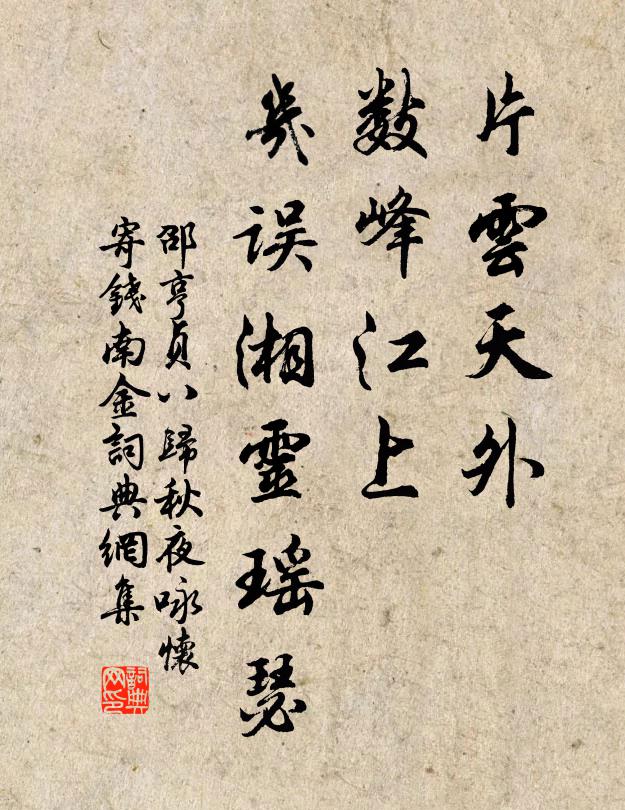 片雲天外
数峰江上
几误湘靈瑶瑟
邵亨貞八歸秋夜咏懷
寄錢南金詞典網集
詞典网印